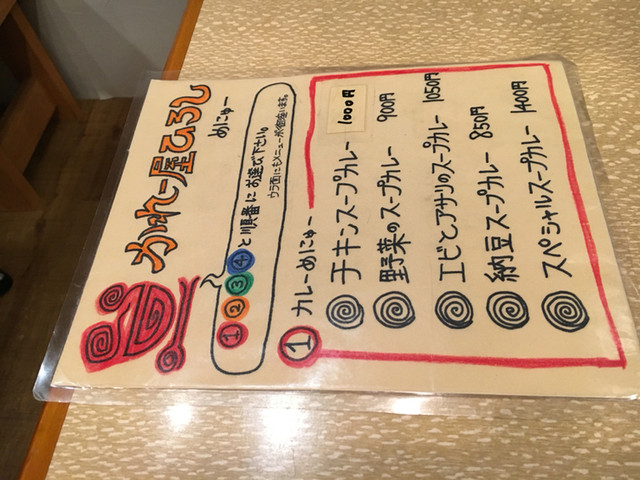 かれー屋ひろし
めにゅー
1 2 3 4 と順番にお選び下さい。
ウラ面にもメニューが御座います。
1 カレーめにゅー
チキンスープカレー 1000円
野菜のスープカレー 900円
エビとアサリのスープカレー 1050円
納豆スープカレー 850円
スペシャルスープカレー 1400円